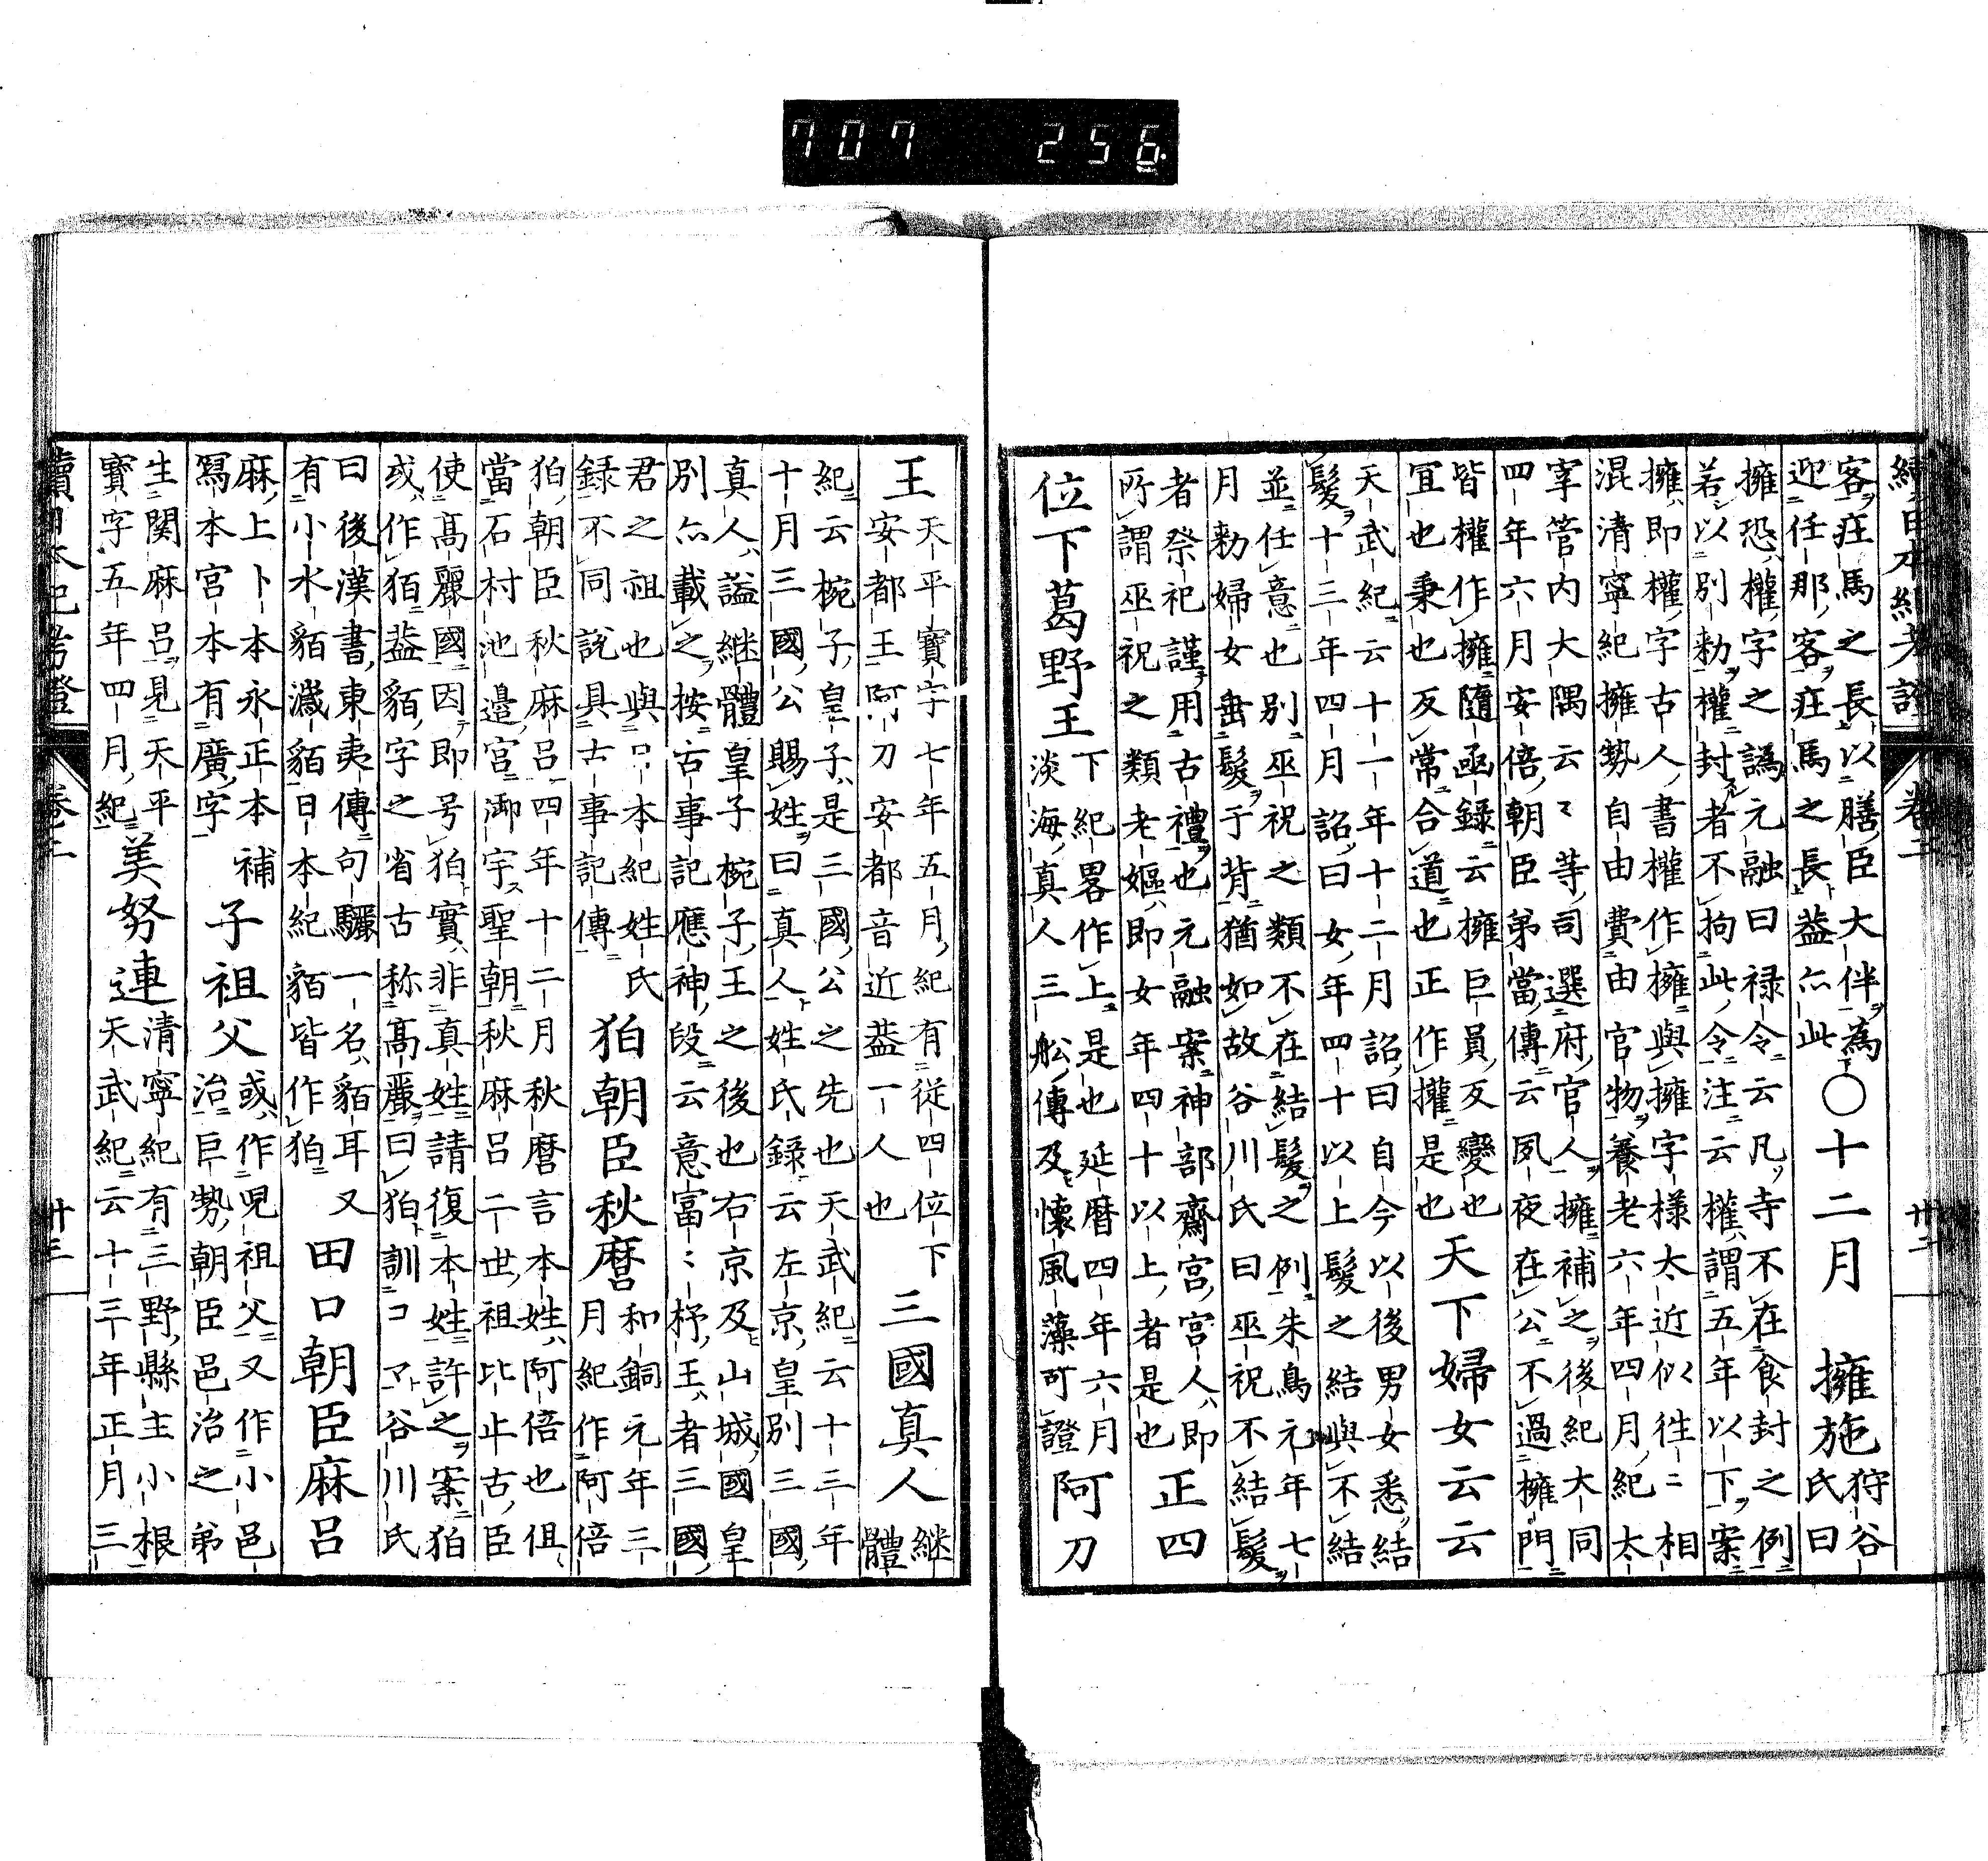 707 256
續日本紀考證 卷二 廿二
客荘馬之長以膳臣大伴為
迎任那客荘馬之長蓋亦此
〇十二月 擁施
狩谷
氏曰
擁恐權字之譌元融曰禄令云凡寺不在食封之例
若以別勅權封者不拘此令注云權謂五年以下案
擁即權字古人書權作擁與擁字様太近似往二相
混清寧紀擁勢自由費由官物養老六年四月紀太
宰管内大隅云〻等司選府官人擁補之後紀大同
四年六月安倍朝臣弟當傳云夙夜在公不過擁門
皆權作擁隨函録云擁巨員反變也
宜也秉也反常合道也正作權是也
天下婦女云云
天武紀云十一年十二月詔曰自今以後男女悉結
髮十三年四月詔曰女年四十以上髮之結與不結
並任意也別巫祝之類不在結髮之例朱鳥元年七
月勅婦女垂髮于背猶如故谷川氏曰巫祝不結髮
者祭祀謹用古禮也元融案神部齋宮宮人即
所謂巫祝之類老嫗即女年四十以上者是也
正四
位下葛野王
下紀畧作上是也延暦四年六月
淡海真人三舩傳及懐風藻可證
阿刀
王
天平寶字七年五月紀有從四位下
安都王阿刀安都音近蓋一人也
三國真人
継
體
紀云椀子皇子是三國公之先也天武紀云十三年
十月三國公賜姓曰真人姓氏録云左京皇別三國
真人謚継體皇子椀子王之後也右京及山城國皇
別亦載之按古事記應神段云意富〻杼王者三國
君之祖也與日本紀姓氏
録不同説具古事記傳
狛朝臣秋麿
和銅元年三
月紀作阿倍
狛朝臣秋麻呂四年十二月秋麿言本姓阿倍也但
當石村池邉宮御宇聖朝秋麻呂二世祖比止古臣
使髙麗國因即号狛實非真姓請復本姓許之案狛
或作狛蓋貊字之省古称髙麗曰狛訓コマ谷川氏
曰後漢書東夷傳句驪一名貊耳又
有小水貊濊貊日本紀貊皆作狛
田口朝臣麻呂
麻上卜本永正本補
冩本宮本有廣字
子祖父
或作児祖父又作小邑
治巨勢朝臣邑治之弟
美努連
生関麻呂見天平
寶字五年四月紀
清寧紀有三野縣主小根
天武紀云十三年正月三
續日本紀考證 卷二 廿三